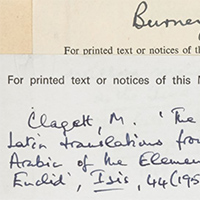 Burney
For printed text or notices of the
For printed text or notices of this M
Clagett, M. 'The
Latin translations from
Arabic of the Elemen
Euclid', Isis, 44 (195